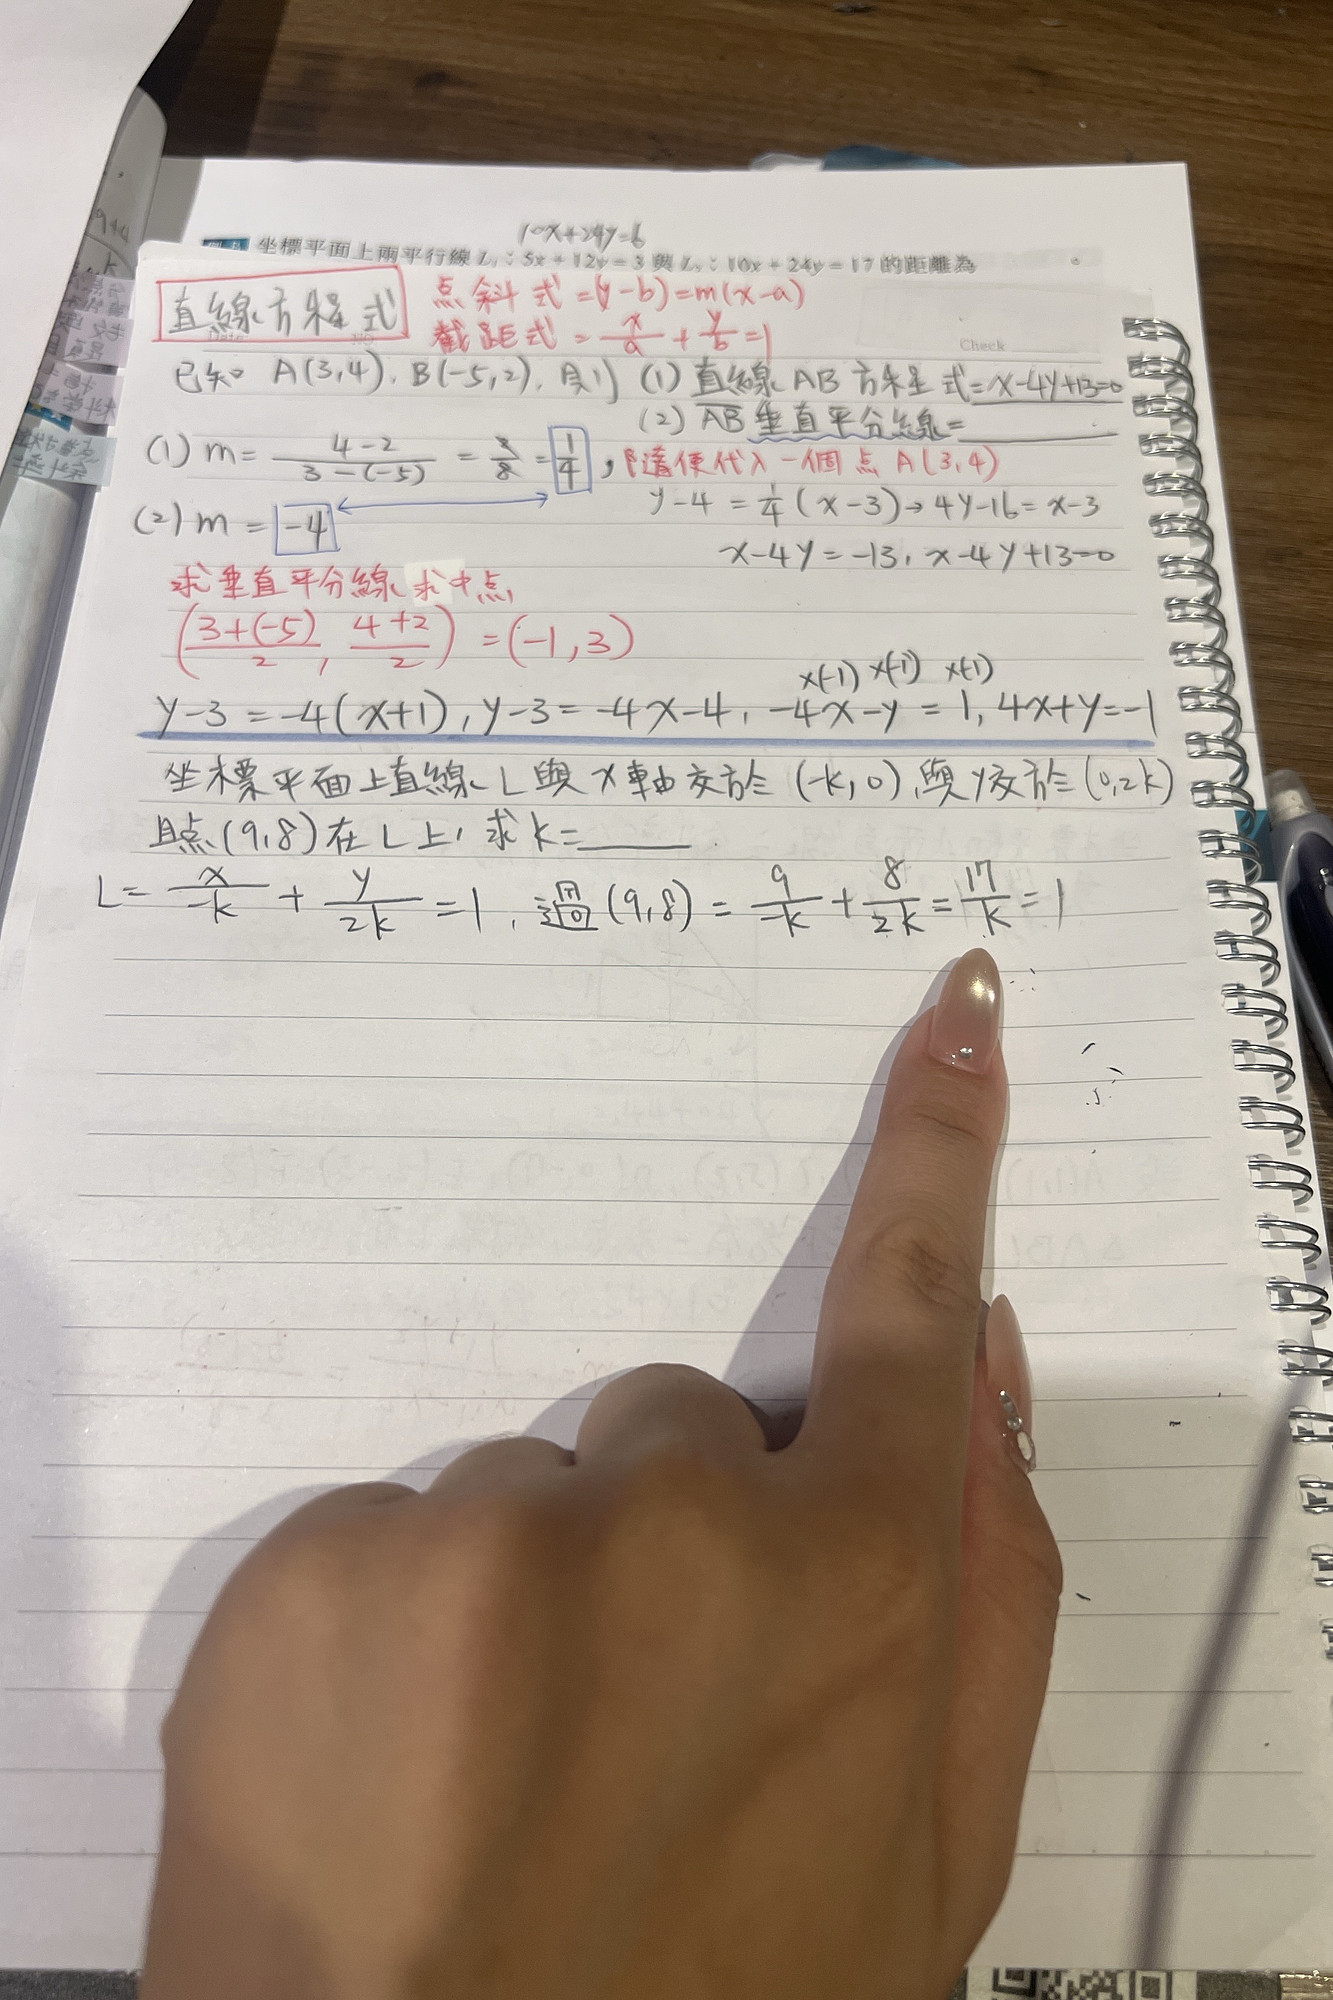 10x+24y=6
坐標平面上兩平行線 L₁：5x+12y=3 與 L₂：10x+24y=17 的距離為 。
直線方程式
点斜式=(y-b)=m(x-a)
截距式=x/a+y/b=1
Check
已知 A(3,4), B(-5,2), 則 (1) 直線AB方程式=x-4y+13=0
(2) AB垂直平分線=
(1) m=4-2/3-(-5)=2/8=1/4, 隨便代入一個点 A(3,4)
y-4=1/4(x-3)→4y-16=x-3
(2) m=-4
x-4y=-13, x-4y+13=0
求垂直平分線求中点
(3+(-5)/2, 4+2/2)=(-1,3)
x(-1) x(-1) x(-1)
y-3=-4(x+1), y-3=-4x-4, -4x-y=1, 4x+y=-1
坐標平面上直線L與x軸交於(-k,0),與y交於(0,2k)
且点(9,8)在L上,求k=
L=x/-k+y/2k=1, 過(9,8)=9/-k+8/2k=17/k=1